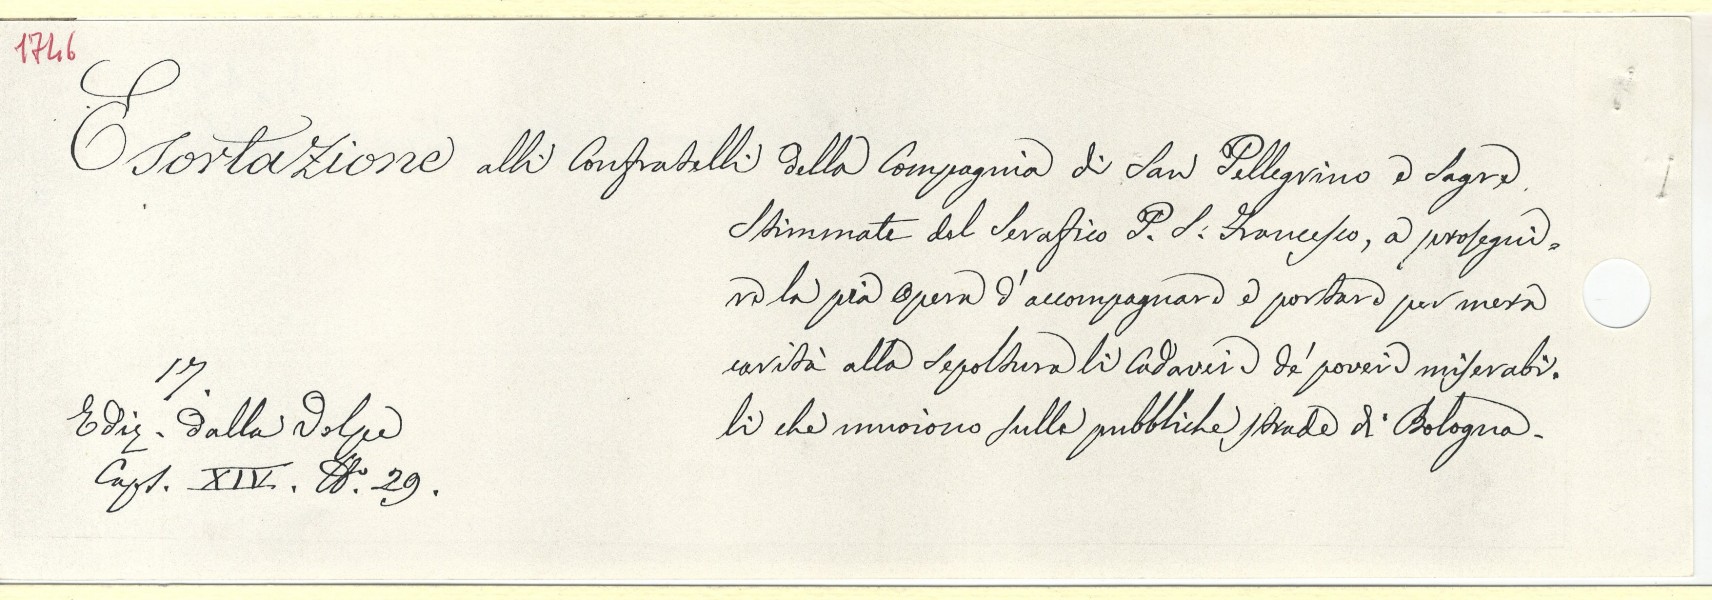 1746
Esortazione alli Confratelli della Compagnia di San Pellegrino e Sagre
Stimmate del Serafico P. S: Francesco, a prosegui=
re la pia Opera d'accompagnare e portare per mera
carità alla Sepoltura li Cadaveri de' poveri miserabi.
li che muoiono sulle pubbliche strade di Bologna.
17.
Ediz. dalla Volpe
Caps. XIV. N.° 29.